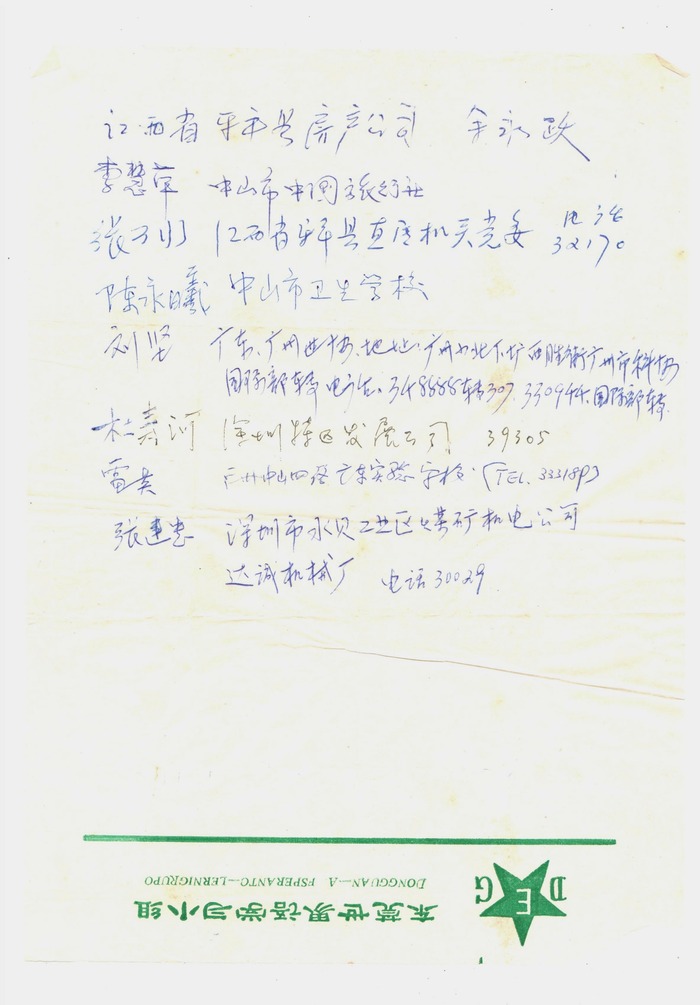 江西省 县房产公司 余永跃
李慧 中山市中国旅行社
张 江西省 县直属机关党委 电话 32170
陈永曦 中山市卫生学校
刘坚 广东、广州世协、地址:广州 西胜街广州市科协
国际部转 电话: 转307 330944 国际部转
杜寿河 深圳特区发展公司 39305
雷 广州中山四路广东实验学校 (TEL. 333189)
张建忠 深圳市水贝工业区 煤矿机电公司
达诚机械厂 电话30029
D E G
DONGGUAN—A ESPERANTO—LERNIGRUPO
东莞世界语学习小组